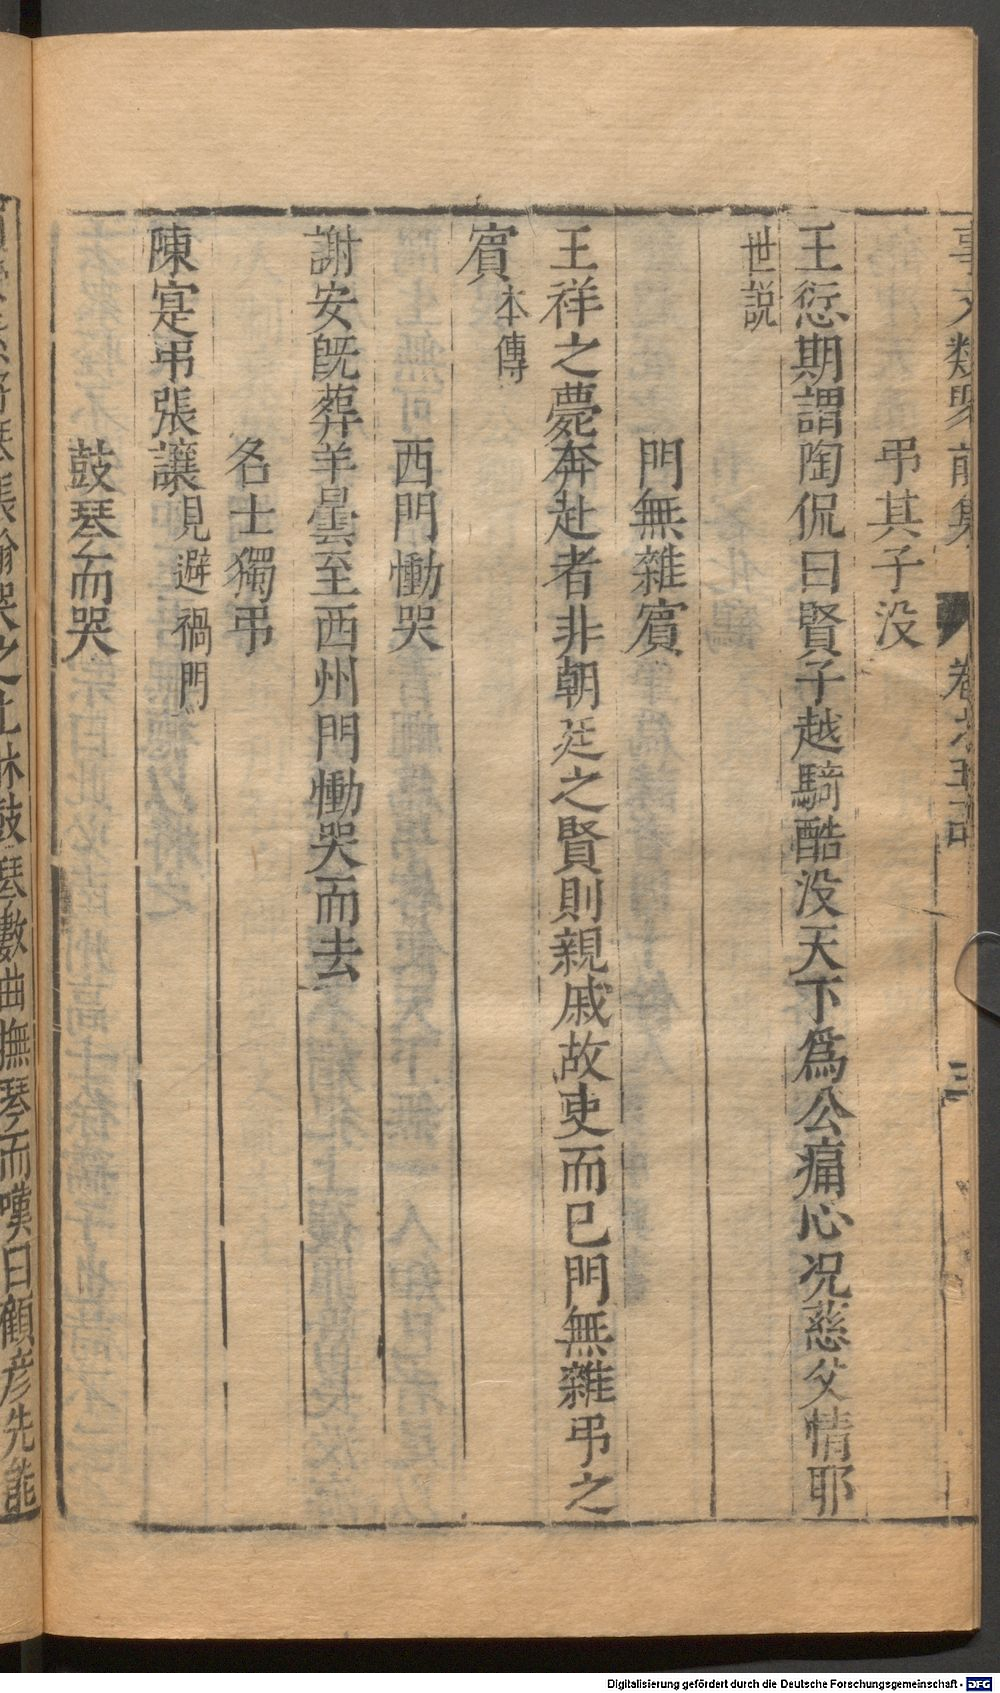 事文類聚 前集 卷之五 三
弔其子没
王愆期謂陶侃曰賢子越騎酷没天下爲公痛心况慈父情耶
世説
門無雜賔
王祥之薨奔赴者非朝廷之賢則親戚故吏而已門無雜弔之
賔本傳
西門慟哭
謝安既葬羊曇至西州門慟哭而去
名士獨弔
陳寔弔張讓見避禍門
鼓琴而哭
張翰哭之上牀鼓琴數曲撫琴而嘆曰顧彦先能
Digitalisierung gefördert durch die Deutsche Forschungsgemeinschaft - DFG